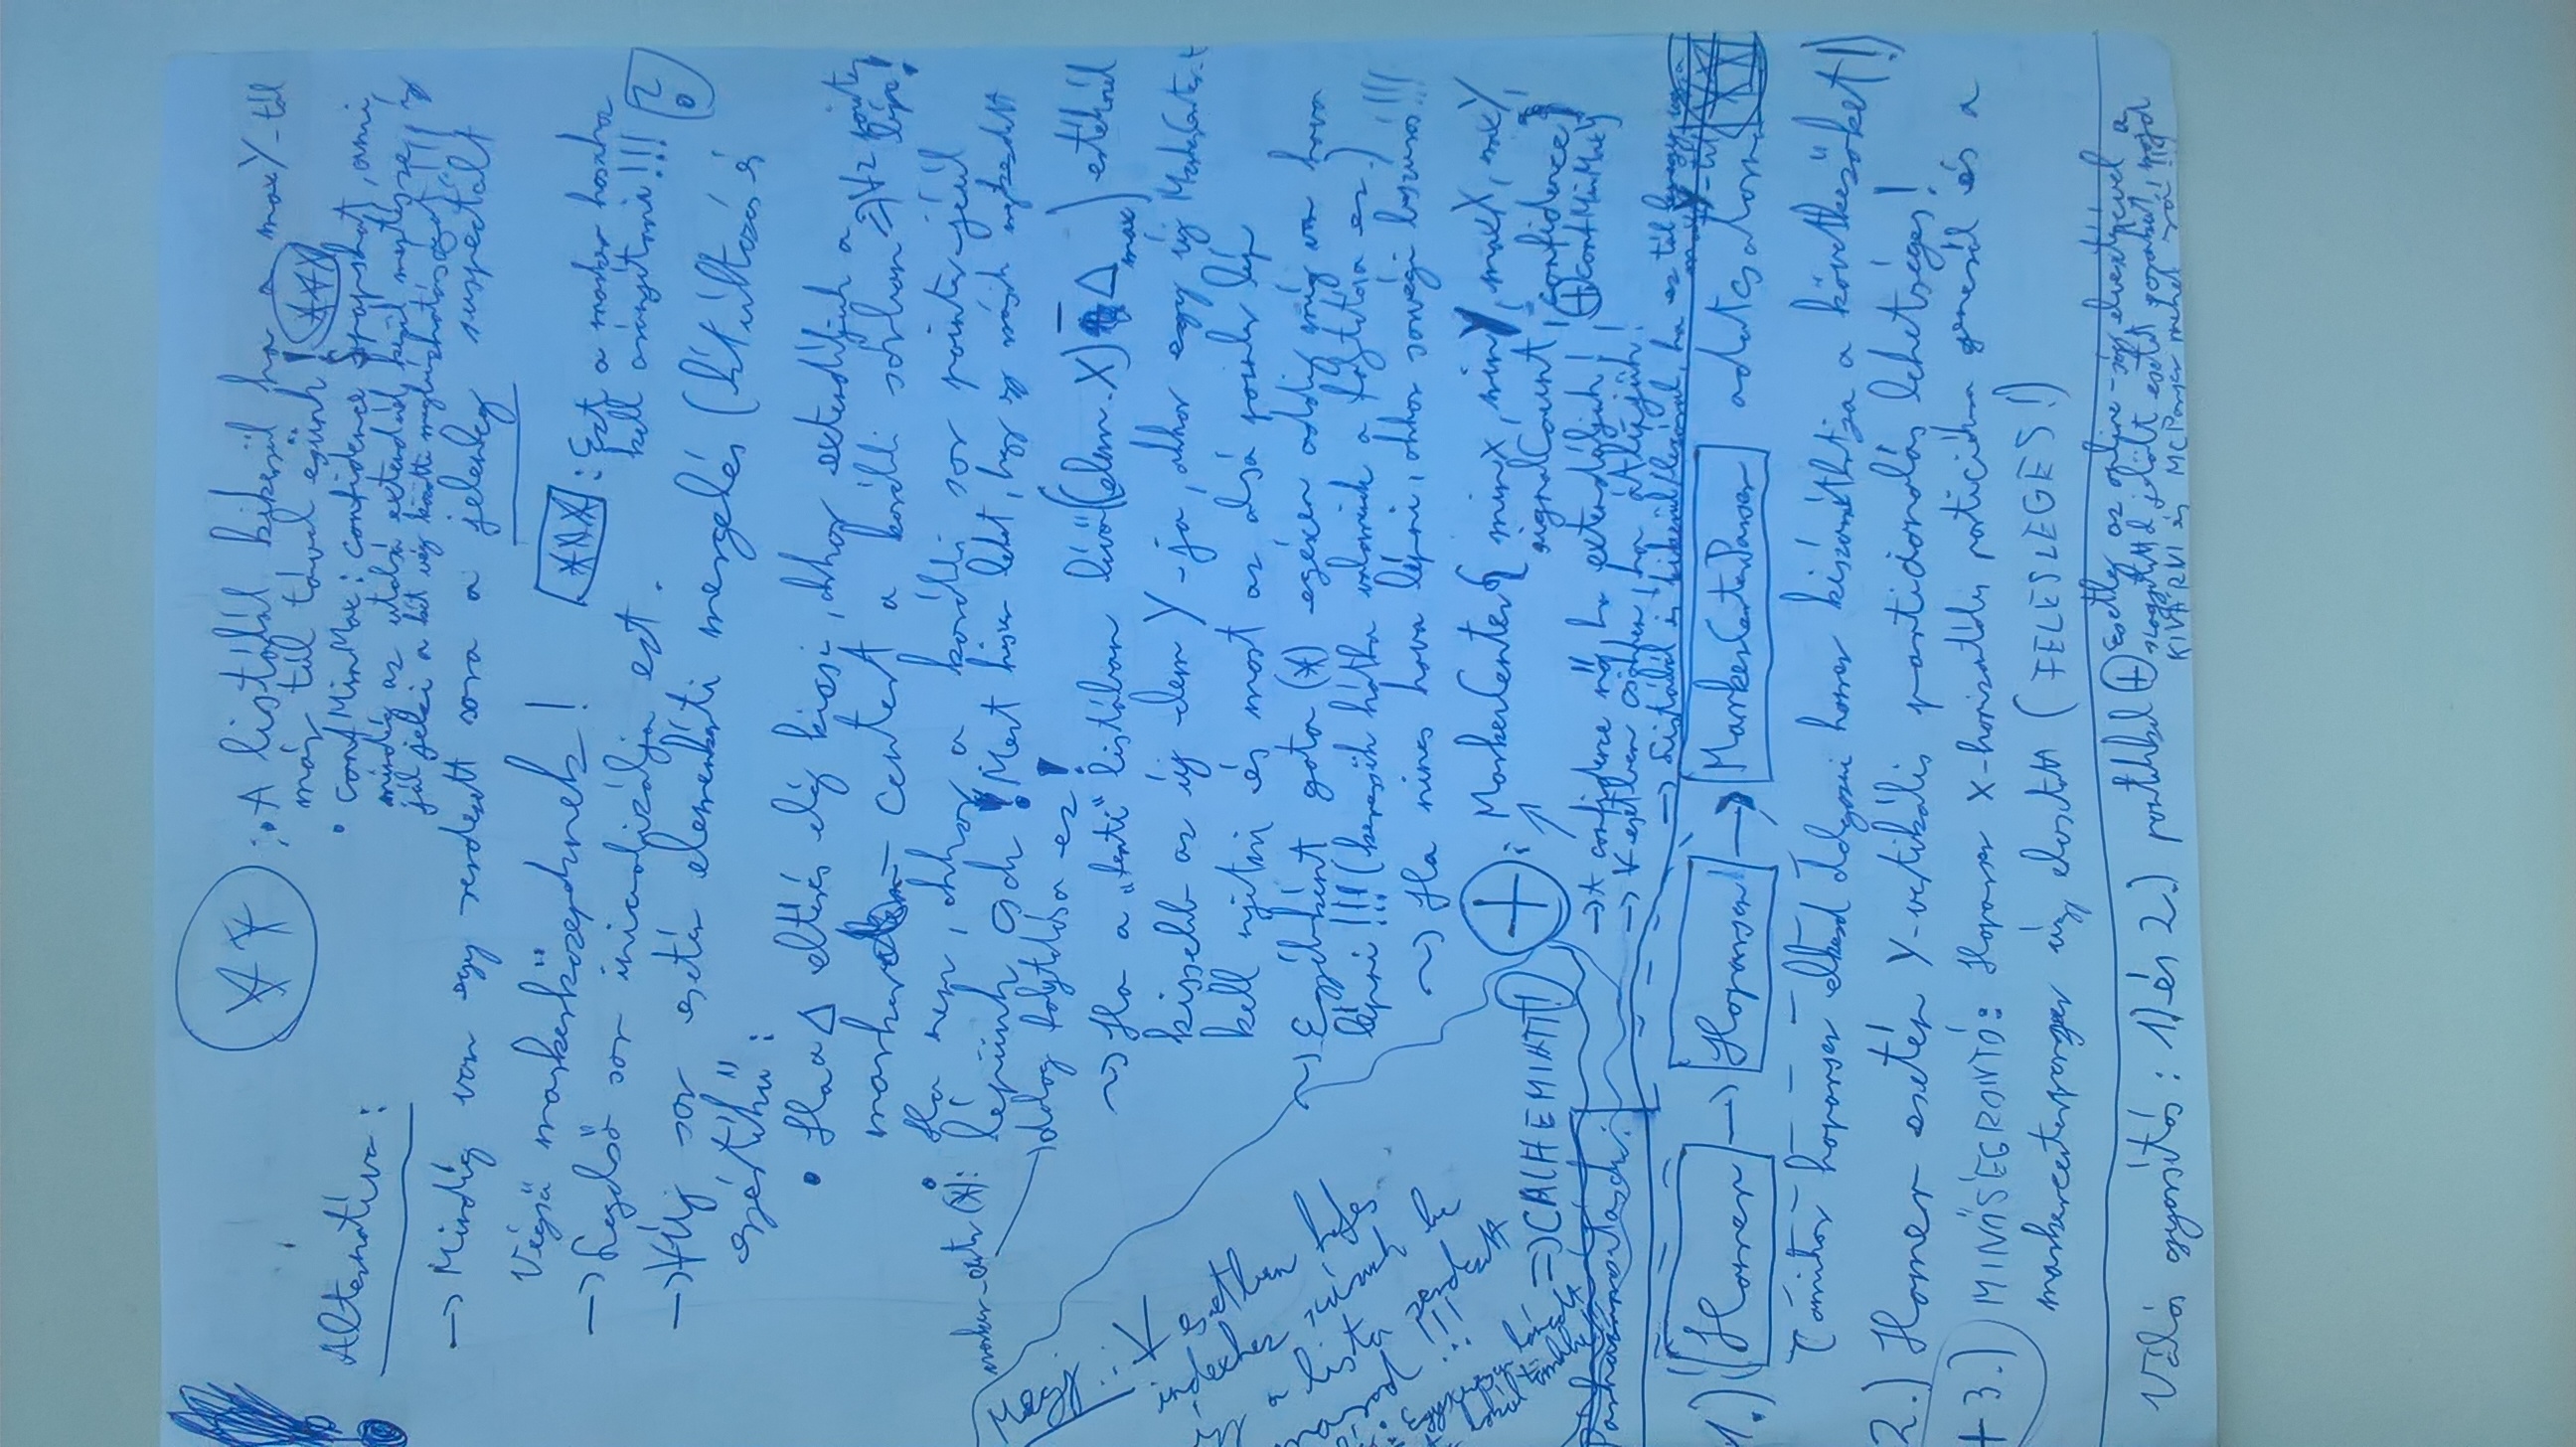 ** : • A listából kikerül ha a maxY-tól
már túl távol esünk! ***
• confMinMax: confidence snapshot, ami
mindig az utolsó extendnél kerül mentésre, így
jól jelzi a két vég közötti megbízhatóságot!!!
Alternatíva:
→ Mindig van egy rendezett sora a jelenleg suspectált
Végső markerközepeknek!
*** : Ezt a marker hoszhoz
kell arányítani!!!
→ Legelső sor inicializálja ezt.
→ ∀ Új sor esetén elemenkénti mergelés (
egyértékű:
• Ha a Δ eltérés elég kicsi, akkor extendáljuk a
marker centert a korábbi sorban => ∀2 pointer
lép!
• Ha nem, akkor a korábbi sor pointer-jéül
marker-center (*):
lépünk csak! Mert hiszen lehet, hogy egy másik megkezdett
dolog folytatása ez!
~> Ha a „fenti" listában lévő ((elem.X) - Δmax) értéknél
kissebb az új elem Y-ja, akkor egy új MarkerCenter-t
kell nyitni és most az alsó pointer lép
~> Egyébként goto (*) egészen addig míg van hova
lépni!!! (keressük hátha valaminek a folytatása ez.)
~> Ha nincs hova lépni, akkor sorvégi beszúrás!!!
Megj.: ∀ esetben helyes
indexhez szúrunk be
így a lista rendezett
marad!!!
=> CACHE MIATT!
⊕: MarkerCenter{ minX, minY, maxX, maxY,
signalCount, confidence}
⊕ confMinMax}
→ A confidence nő, ha extendáljuk!
→ ∀ esetben csökken, ha átlépjük!
→ Listából is kikerül/lezárul, ha ez túl
maxY-tól **
Párhuzamosítások:
1.) Homer → Hoparser → MarkerCenterParser adatcsatorna
(amikor hoparser elkezd dolgozni homer kiszámíthatja a következőket!)
2.) Homer esetén Y-vertikális partícionálás lehetséges!
+3.) MINŐSÉGRONTÓ: Hoparser X-horizontális partíciókra generál és a
markercenterparser úgy elosztott (FELESLEGES!)
Valós gyorsítás: 1.) és 2.) pontokkal ⊕ Esetleg az online-ság elvesztésével a
jelölt esetet , majd
KIVÁRNI és MCParser mehet rá!!!